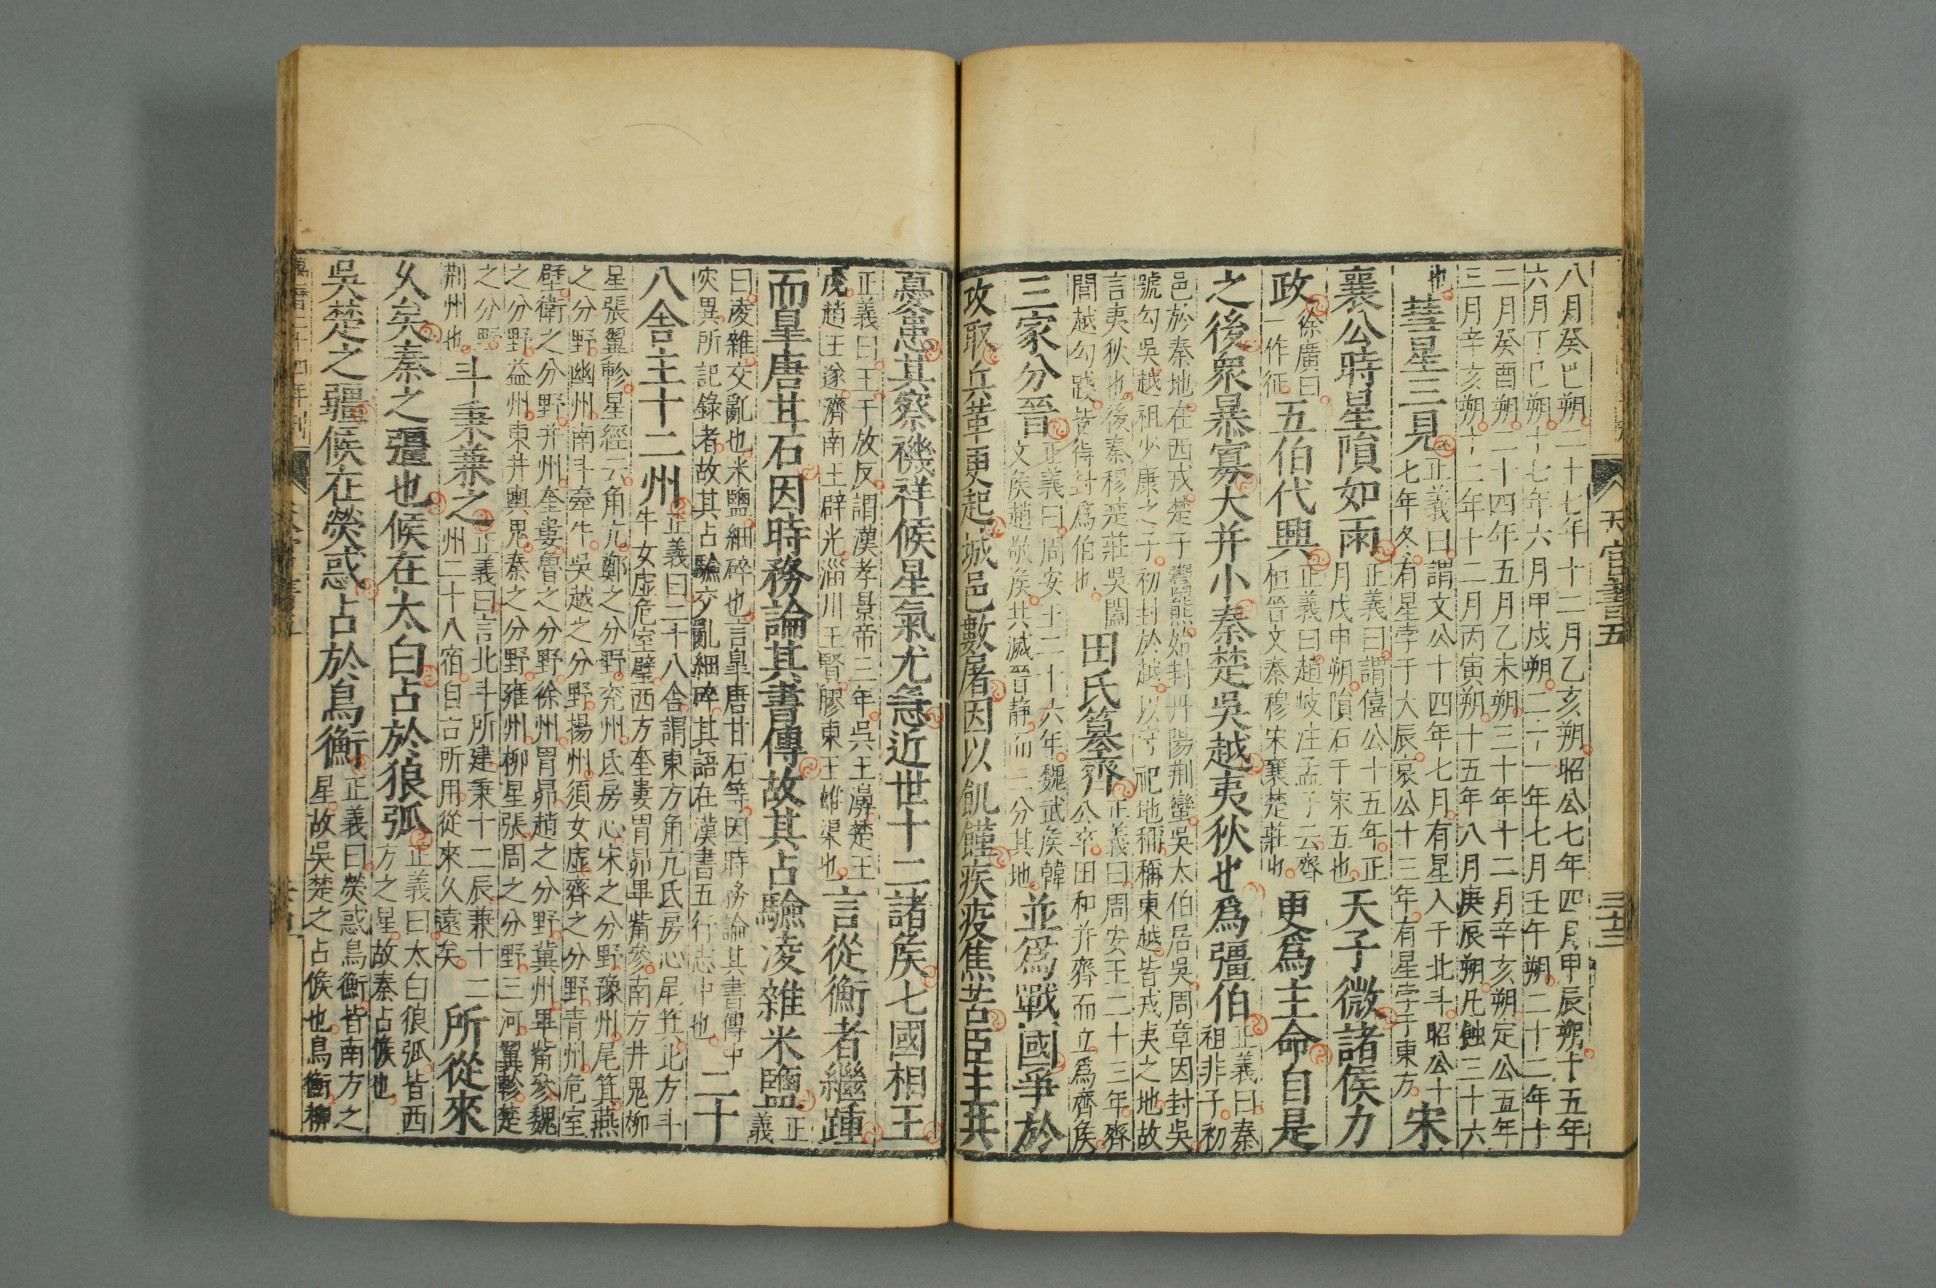 八月癸巳朔二十七年十二月乙亥朔昭公七年四月甲辰朔十五年
六月丁巳朔十七年六月甲戌朔二十一年七月壬午朔二十二年十
二月癸酉朔二十四年五月乙未朔三十年十二月辛亥朔定公五年
三月辛亥朔十二年十二月丙寅朔十五年八月庚辰朔凡蝕三十六
也彗星三見正義曰謂文公十四年七月有星入于北斗昭公十七年冬有星孛于大辰哀公十三年有星孛于東方宋
襄公時星隕如雨正義曰謂僖公十五年正月戊申朔隕石于宋五也天子微諸侯力
政徐廣曰一作征五伯代興正義曰趙岐注孟子云齊桓晉文秦穆宋襄楚莊也更爲主命自是
之後衆暴寡大并小秦楚吳越夷狄也爲彊伯正義曰秦祖非子初
邑於秦地在西戎楚子鬻熊始封丹陽荆蠻吳太伯居吳周章因封吳
號勾吳越祖少康之子初封於越以守祀地稱稱東越皆戎夷之地故
言夷狄也後秦穆楚莊吳闔閭越勾踐皆得封爲伯也田氏簒齊正義曰周安王二十三年齊公卒田和并齊而立爲齊侯
三家分晉正義曰周安王二十六年魏武侯韓文侯趙敬侯共滅晉静而三分其地並爲戰國爭於
攻取兵革更起城邑數屠因以飢饉疾疫焦苦臣主共
憂患其察禨祥候星氣尤急近世十二諸侯七國相王
正義曰王于放反謂漢孝景帝三年吳王濞楚王戊趙王遂濟南王辟光淄川王賢膠東王雄渠也言從衡者繼踵
而皐唐甘石因時務論其書傳故其占驗凌雜米鹽正義
曰凌雜交亂也米鹽細碎也言皐唐甘石等因時務論其書傳中
灾異所記錄者故其占驗交亂細碎其語在漢書五行志中也二十
八舍主十二州正義曰二十八舍謂東方角亢氐房心尾箕北方斗牛女虛危室壁西方奎婁胃昴畢觜參南方井鬼柳
星張翼軫星經云角亢鄭之分野兖州氐房心宋之分野豫州尾箕燕
之分野幽州南斗牽牛吳越之分野揚州須女虛齊之分野青州危室
壁衛之分野并州奎婁魯之分野徐州胃昴趙之分野冀州畢觜參魏
之分野益州東井輿鬼秦之分野雍州柳星張周之分野三河翼軫楚
之分野荆州也斗秉兼之正義曰言北斗所建秉十二辰兼十二州二十八宿自古所用從來久遠矣所從來
久矣秦之疆也候在太白占於狼弧正義曰太白狼弧皆西方之星故秦占候也
吳楚之疆候在熒惑占於鳥衡正義曰熒惑鳥衡皆南方之星故吳楚之占候也鳥衡柳